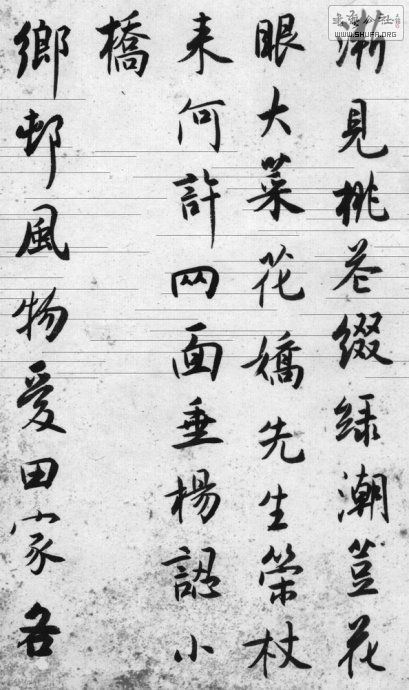 漸見桃花綴綠潮荳花
眼大菜花嬌先生策杖
来何許四面垂楊認小
橋
鄉邨風物愛田家各
WWW.SHUFA.ORG